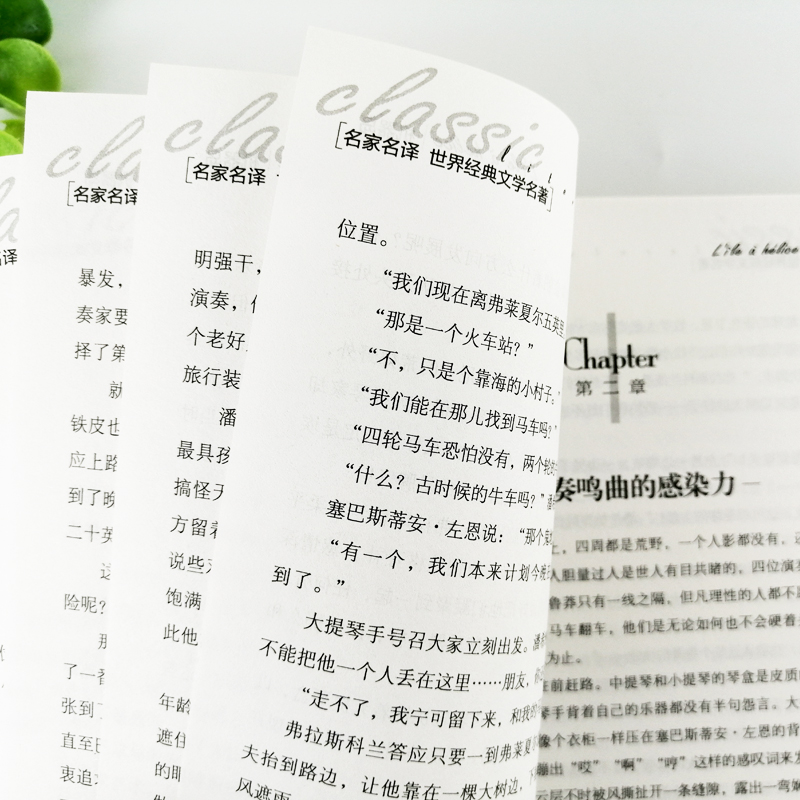 名译
classic
[名家名译
暴发，
奏家要
择了第
就
铁皮也
应上路
到了晚
二十英
险呢？
了一番
张到了
直至
衷追
classic
[名家名译
明强干，
演奏，
个老好
旅行装
潘
最具孩
搞怪天
方留着
说些
饱满
此他
年龄
遮住
的眼
classic
[名家名译 世界经典文学名著]
位置。
“我们现在离弗莱夏尔五英里
“那是一个火车站？”
“不，只是个靠海的小村子。”
“我们能在那儿找到马车吗？”
“四轮马车恐怕没有，两个轮
“什么？古时候的牛车吗？”潘
塞巴斯蒂安·左恩说：“那个
“有一个，我们本来计划今晚
到了。”
大提琴手号召大家立刻出发。潘
不能把他一个人丢在这里……朋友，
“走不了，我宁可留下来，和我的
弗拉斯科兰答应只要一到弗莱夏
夫抬到路边，让他靠在一棵大树边，下
风遮雨
L'île à hélice
Chapter
第二章
奏鸣曲的感染力
上，四周都是荒野，一个人影都没有。还
人胆量过人是世人有目共睹的。四位演奏
鲁莽只有一线之隔，但凡理性的人都不
马车翻车，他们是无论如何也不会硬着
为止。
在前赶路。中提琴和小提琴的琴盒是皮质
琴手背着自己的乐器都没有半句怨言。大
像个衣柜一样压在塞巴斯蒂安·左恩的背
蹦出“哎”“啊”“哼”这样的感叹词来发
云层不时被风撕扯开一条缝隙，露出一弯